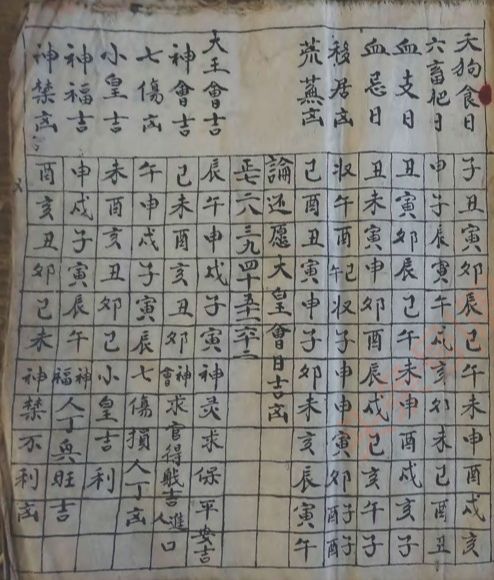 天狗食日子丑寅卯辰巳午未申酉戌亥
六畜肥日申子辰寅午戌亥卯未巳酉丑
血支日丑寅卯辰巳午未申酉戌亥子
血忌日丑未寅申卯酉辰戌巳亥午子
移居凶収午酉収子申申寅卯
荒蕪凶巳酉丑寅申子卯未亥辰寅午
論还愿大皇會日吉凶
正七二八三九四十五十一六十二
大王會吉辰午申戌子寅神灵求保平安吉
神會吉巳未酉亥丑卯神會求官得吉人進口
七傷凶午申戌子寅辰七傷損人丁凶
小皇吉未酉亥丑卯巳小皇吉利
神福吉申戌子寅辰午神福人丁興旺吉
神禁凶酉亥丑卯巳未神禁不利凶